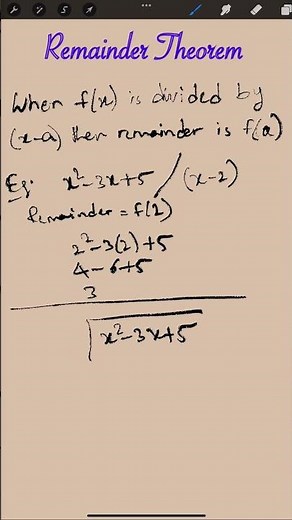 Remainder Theorem
When f(x) is divided by
(x-a) then remainder is f(a)
Eg: x²-3x+5 / (x-2)
Remainder = f(2)
2²-3(2)+5
4-6+5
3
x²-3x+5